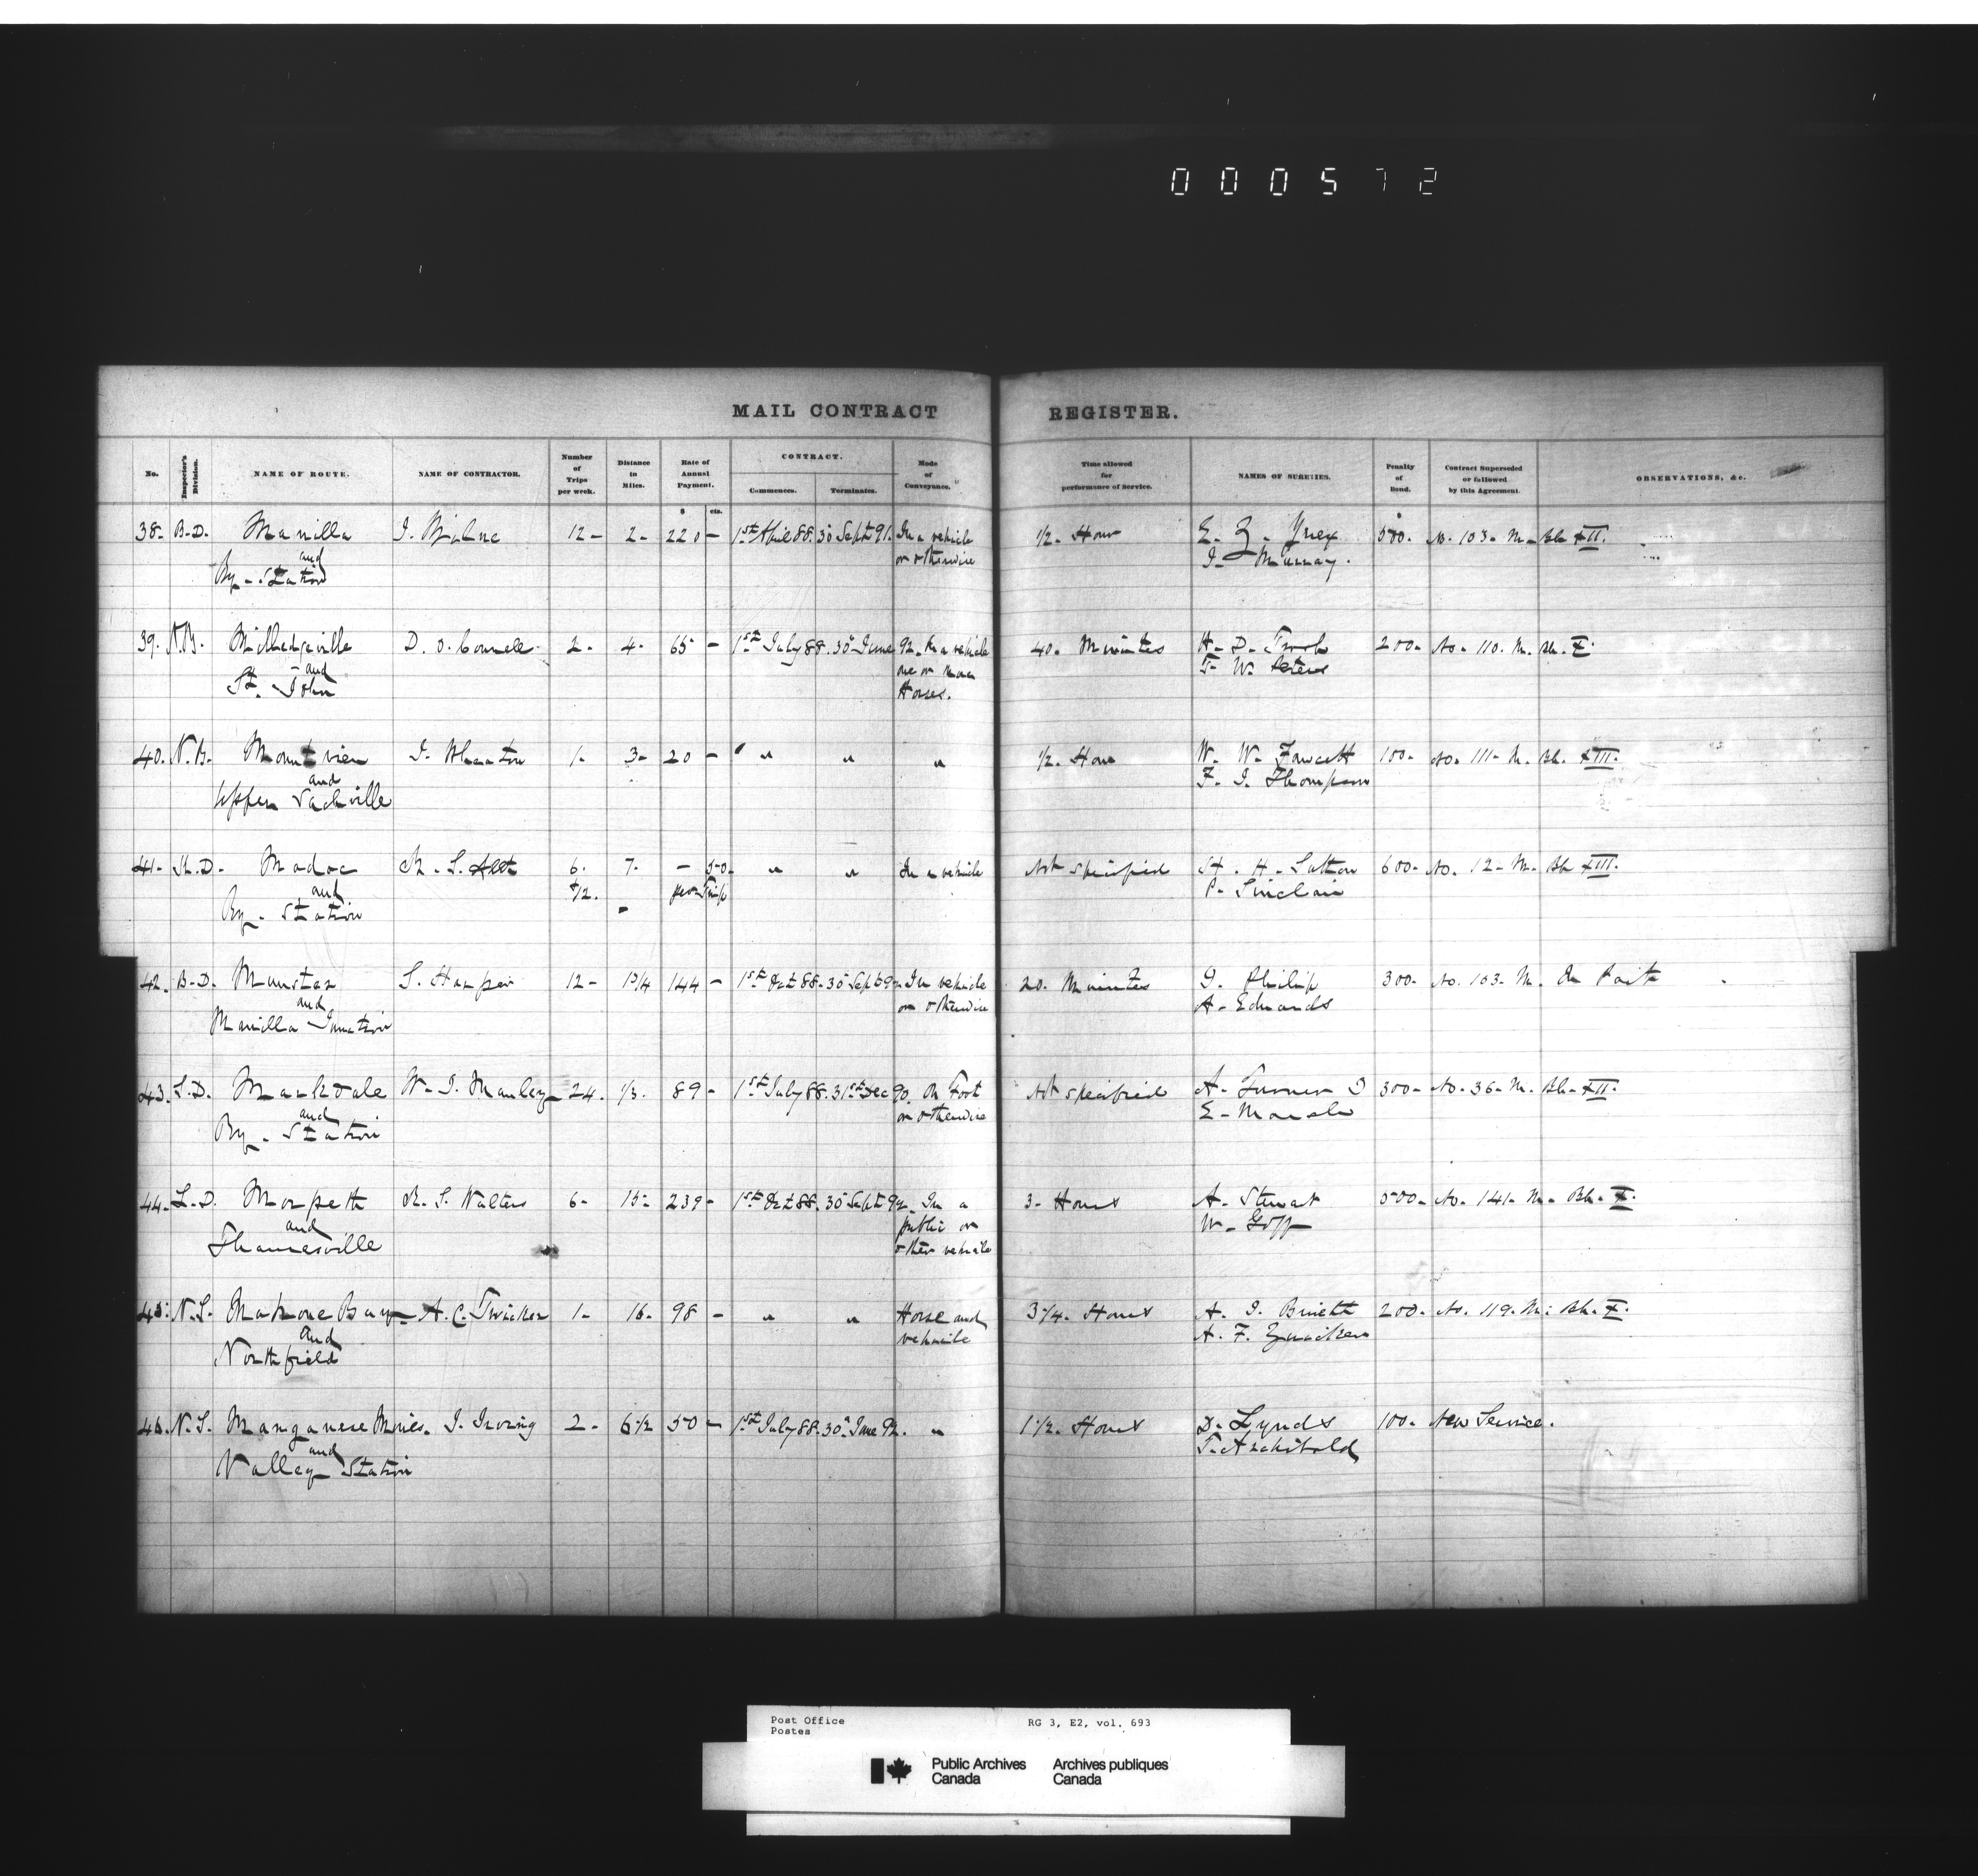 000572
MAIL CONTRACT REGISTER.
No. Inspector's Division. NAME OF ROUTE. NAME OF CONTRACTOR. Number of Trips per week. Distance in Miles. Rate of Annual Payment. CONTRACT. Commences. Terminates. Mode of Conveyance. Time allowed for performance of Service. NAMES OF SURETIES. Penalty of Bond. Contract Superseded or followed by this Agreement. OBSERVATIONS, &c.
$ cts.
38. B.D. Manilla J. 12 - 2 - 220 - 1st April 88. 30 Sept 91. In a vehicle 1/2 - Hour 500. No. 103 - M - Bk XII.
and or otherwise J. Murray.
By - Station
39. N.B. Milledgeville D. O. Connell 2 - 4 - 65 - 1st July 88. 30 June 92. In a vehicle 40. Minutes H. D. 200 - No. 110. M. Bk. X.
and one or more T. W. Peters
St. John Horses.
40. N.B. Mount view J. Wheaton 1 - 3 - 20 - " " " 1/2. Hour W. W. Fawcett 100 - No. 111 - M. Bk. XIII.
and F. J. Thompson
Upper Sackville
41 - K.D. Madoc R. S. 6. 7. - 50 - " " In a vehicle Not specified H. H. 600 - No. 12 - M - Bk XIII.
and /12. per Trip P. Sinclair
By - Station
42. B.D. Munster S. Harper 12 - 1 3/4 144 - 1st Oct 88 - 30 Sept 9 In vehicle 20. Minutes Philip 300 - No. 103 - M. In Part
and or otherwise A. Edwards
Manilla Junction
43. S.D. Markdale W. J. Manley 24. 1/3. 89 - 1st July 88. 31st Dec 90. On Foot Not specified A. Turner 300 - No. 36 - M. Bk - XII.
and or otherwise E - Marsh
By - Station
44. L.D. Morpeth R. S. Walters 6 - 15 - 239 - 1st Oct 88. 30 Sept 92. In a 3 - Hours A. Stewart 500 - No. 141 - M. Bk. X.
and public or W. Goff
Thamesville other vehicle
45. N.S. Mahone Bay A. C. Zwicker 1 - 16 - 98 - " " Horse and 3 3/4. Hours A. J. 200 - No. 119 - M. Bk. X.
and vehicle A. F. Zwicker
Northfield
46. N.S. Manganese Mines. J. Irving 2 - 6 1/2 50 - 1st July 88. 30 June 92. " 1 1/2. Hours D. Lynds 100 - New Service.
and T. Archibald
Valley Station
Post Office RG 3, E2, vol. 693
Postes
Public Archives Archives publiques
Canada Canada